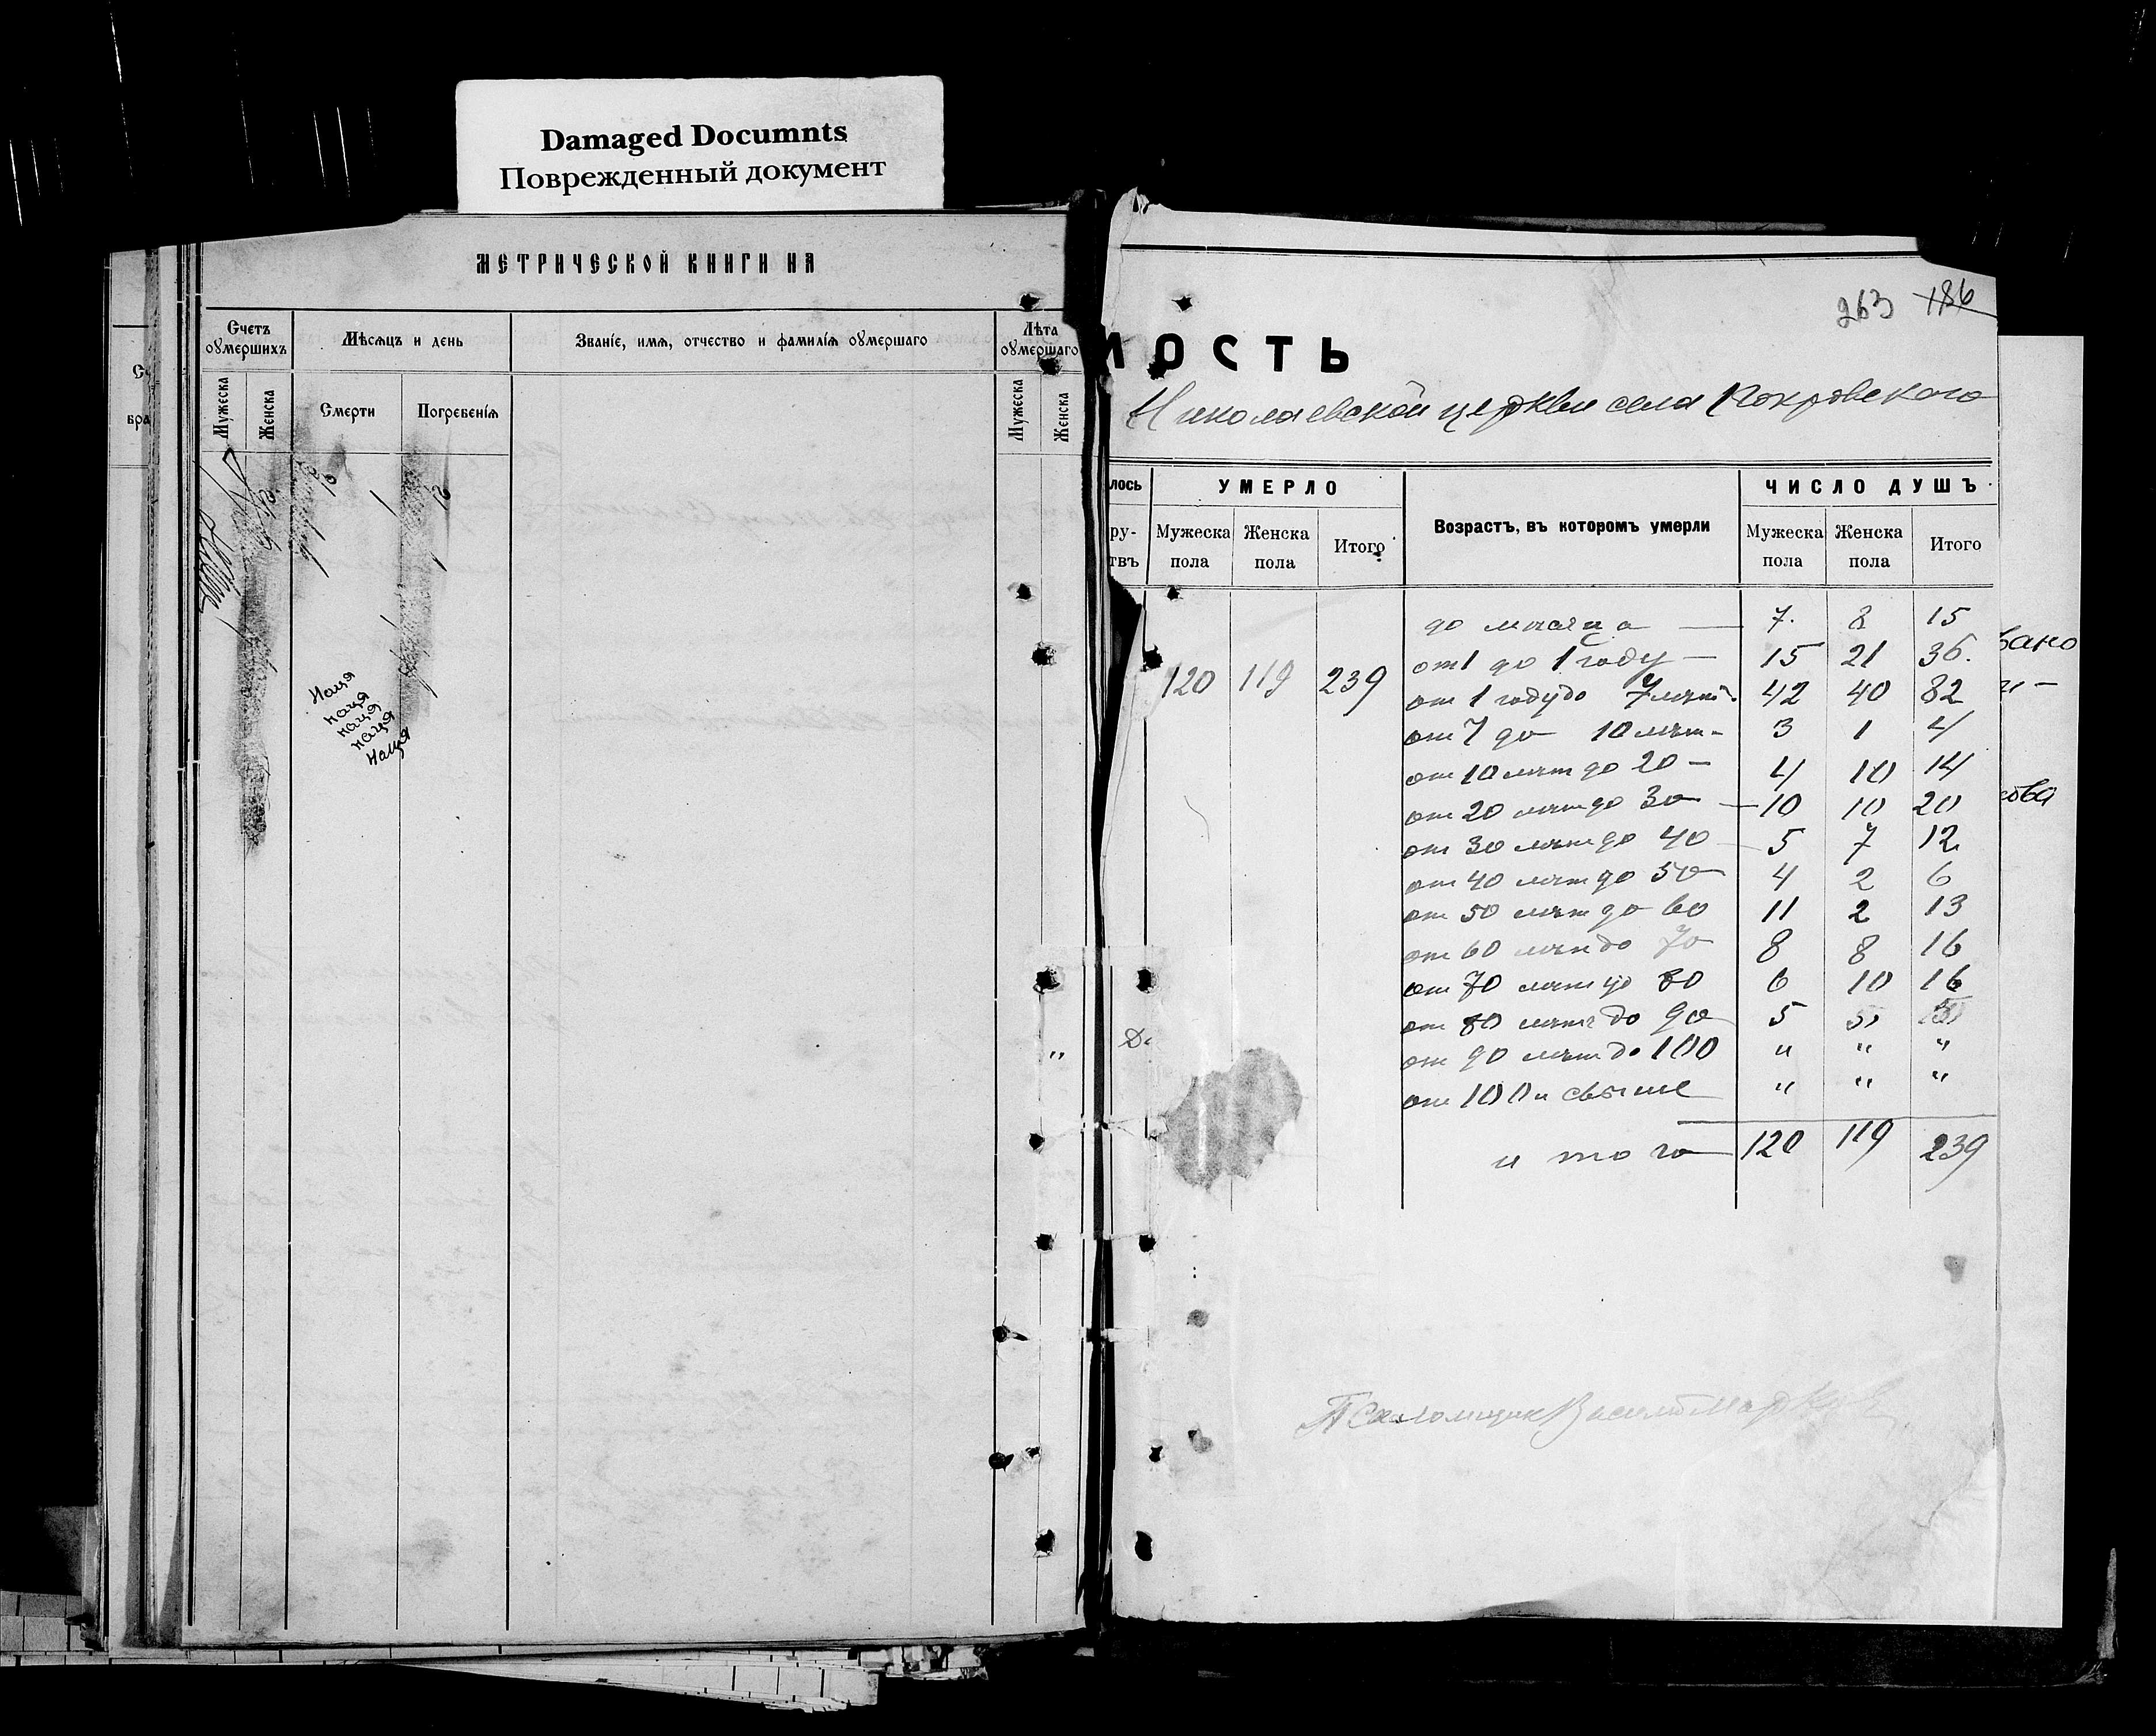 Damaged Documnts
Поврежденный документ
МЕТРИЧЕСКОЙ КНИГИ НА
Счетъ оумершихъ
Мѣсяцъ и день
Званіе, имя, отчество и фамилія оумершаго
Лѣта оумершаго
Мужеска
Женска
Смерти
Погребенія
Мужеска
Женска
бра
наця
наця
наця
наця
наця
"
263 186
МОСТЬ
Николаевской церкви села Покровского
лось
УМЕРЛО
Возрастъ, въ которомъ умерли
ЧИСЛО ДУШЪ
ру-
твъ
Мужеска пола
Женска пола
Итого
Мужеска пола
Женска пола
Итого
до мѣсяца — 7. 8 15
от 1 до 1 году — 15 21 36.
120 119 239
от 1 году до 7 лѣт - 42 40 82
от 7 до 10 лѣт - 3 1 4
от 10 лѣт до 20 — 4 10 14
от 20 лѣт до 30 — 10 10 20
от 30 лѣт до 40 — 5 7 12
от 40 лѣт до 50 — 4 2 6
от 50 лѣт до 60 11 2 13
от 60 лѣт до 70 8 8 16
от 70 лѣт до 80 6 10 16
от 80 лѣт до 90 5
от 90 лѣт до 100 " " "
от 100 и свыше " " "
итого — 120 119 239
Псаломщик Василий Марков
вано
ова